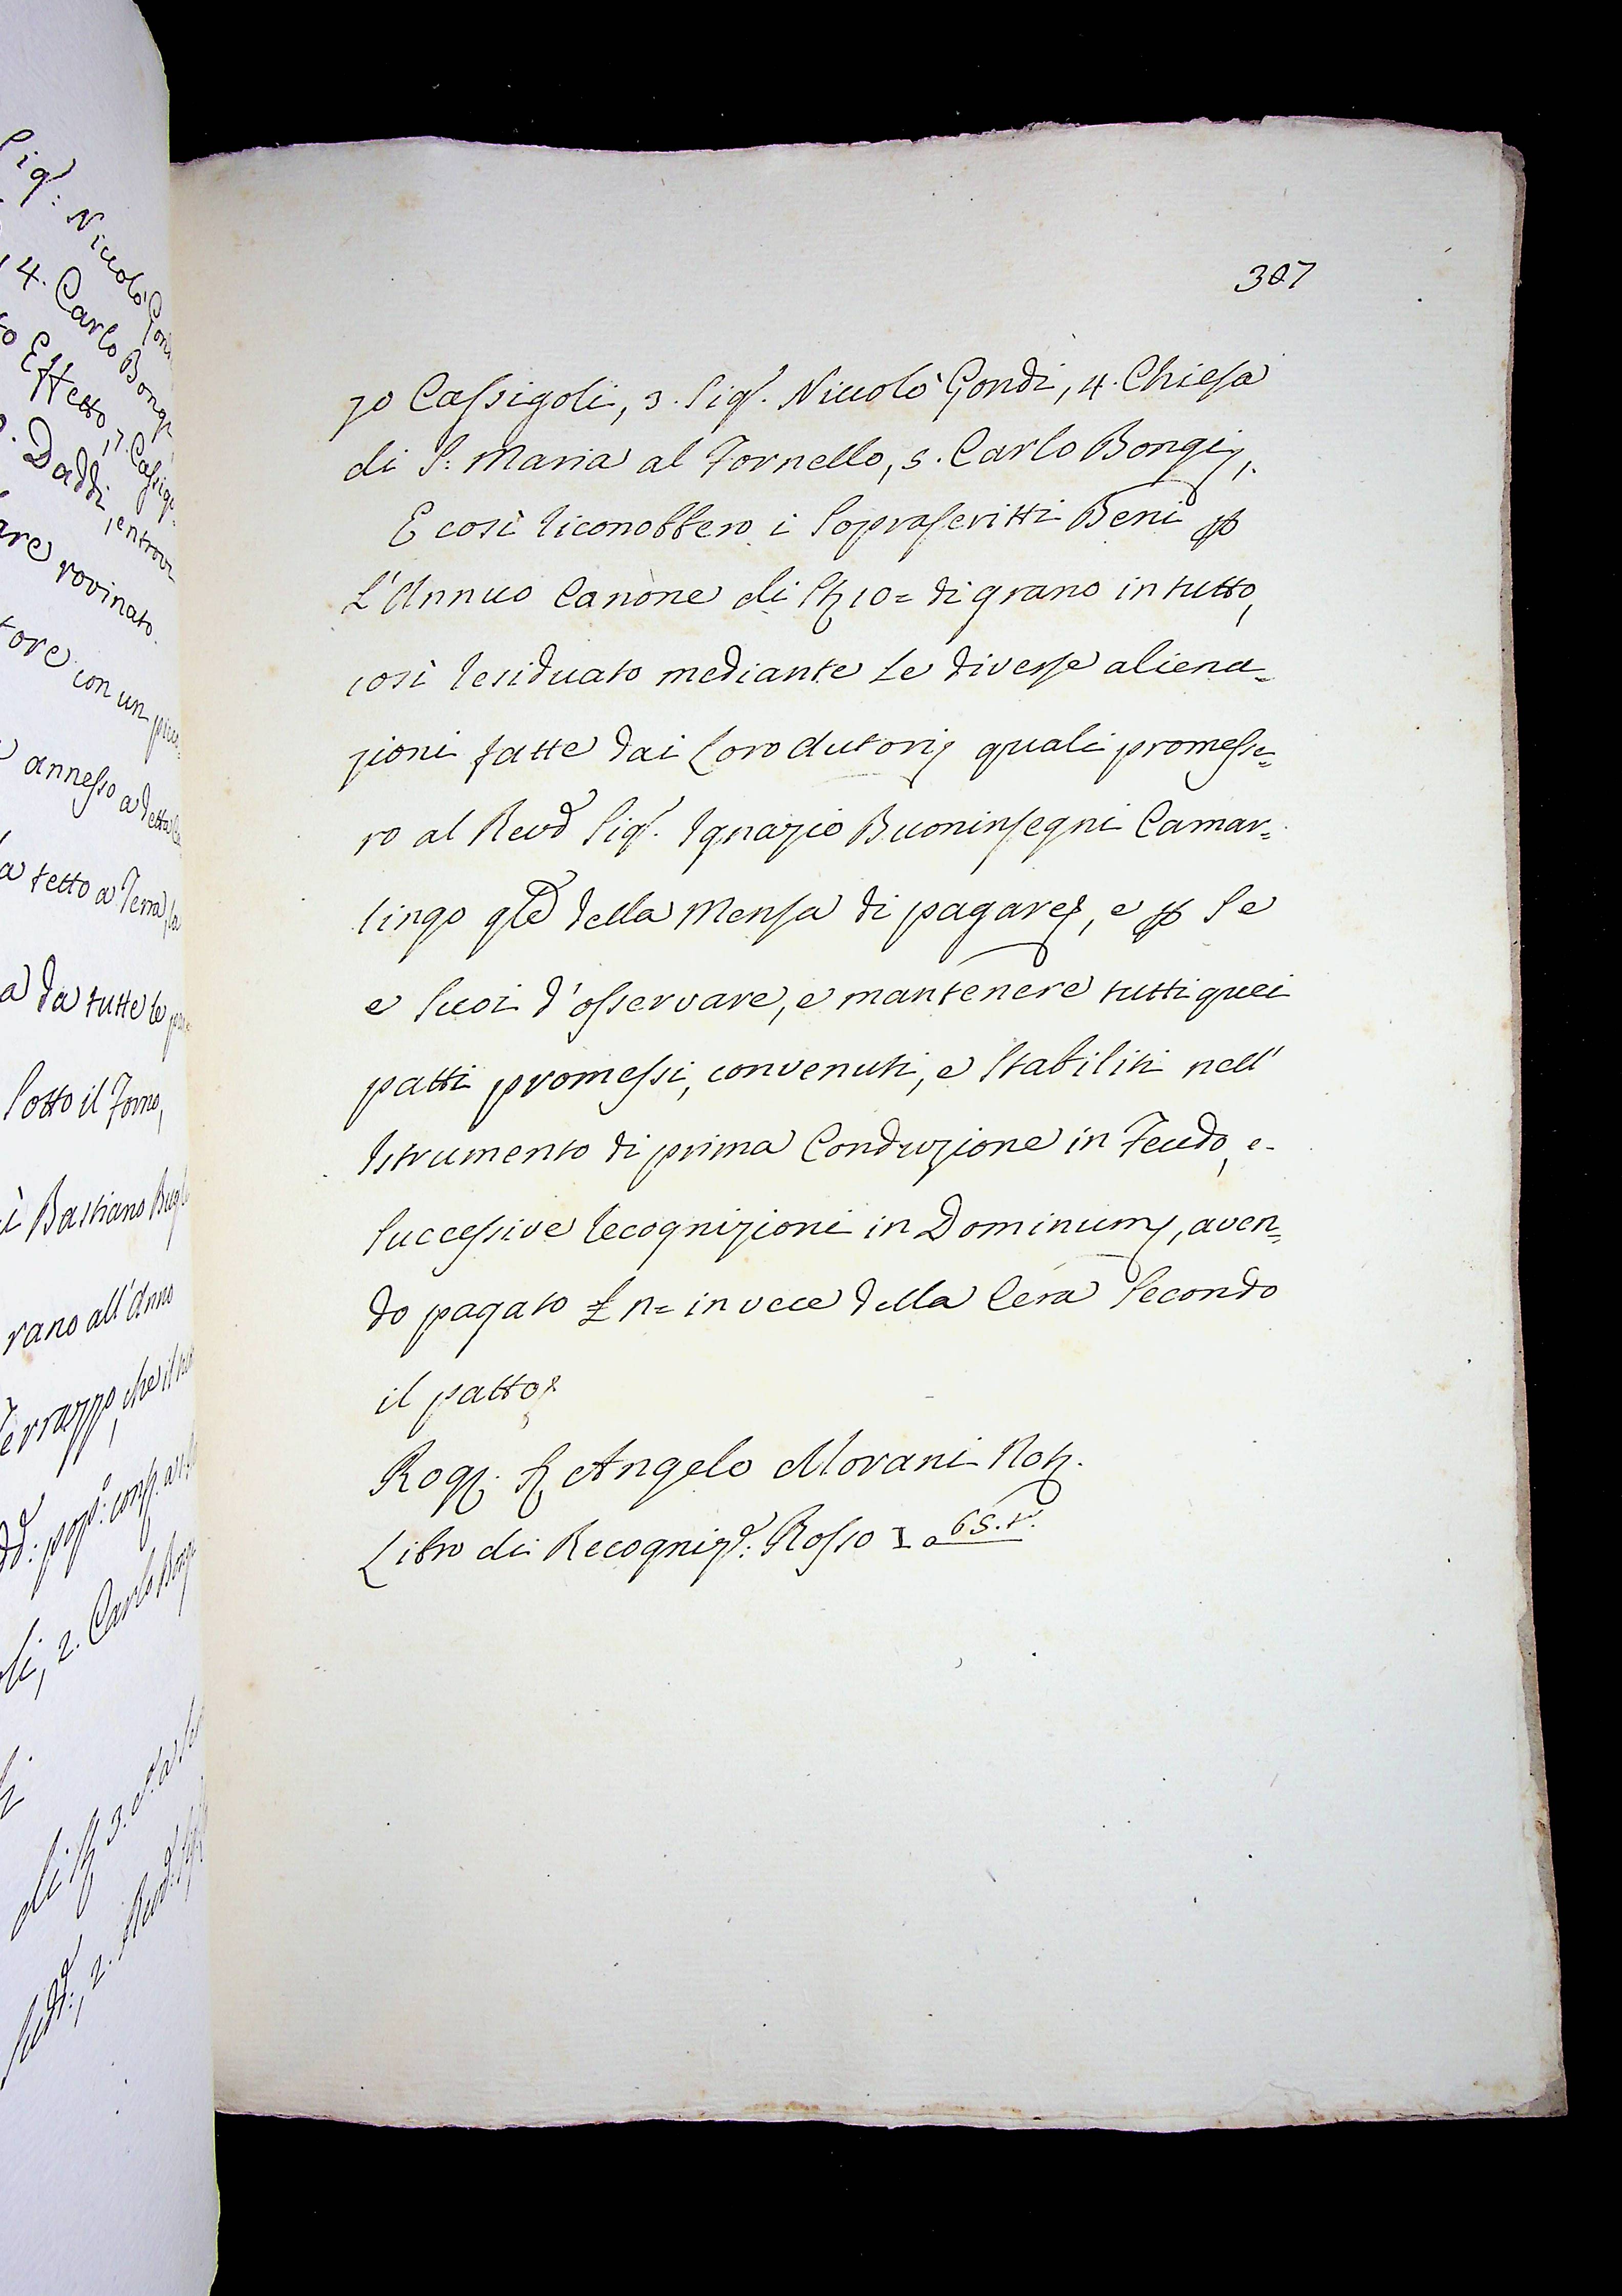 Sigr: Niccolò Gon
4. Carlo Bong
Effetto, 7. Cassigo
Daddi, entrov
are rovinato.
tore con un
annesso a detta
a tetto a Terra, la
a da tutte le
Sotto il Forno,
Bastiano Bugl
rano all'Anno
errazzo, che il
li, 2. Carlo Bong
di St 3.
307
zo Cassigoli, 3. Sigr. Niccolò Gondi, 4. Chiesa
di S: Maria al Fornello, 5. Carlo Bongi,
E così riconobbero i Soprascritti Beni p
L'Annuo Canone di St 10= di grano in tutto,
così residuato mediante le diverse aliena=
zioni fatte dai Loro Autori quali promesse=
ro al Revd Sigr. Ignazio Buoninsegni Camar=
lingo gle della Mensa di pagare, e p Se
e Suoi d'osservare, e mantenere tutti quei
patti promessi, convenuti, e Stabiliti nell'
Istrumento di prima Conduzione in Feudo, e
Successive recognizioni in Dominum, aven=
do pagato £ n= in vece della Cera Secondo
il patto
Rog. S Angelo Morani Not.
Libro di Recognize: Rosso I a 65. t.